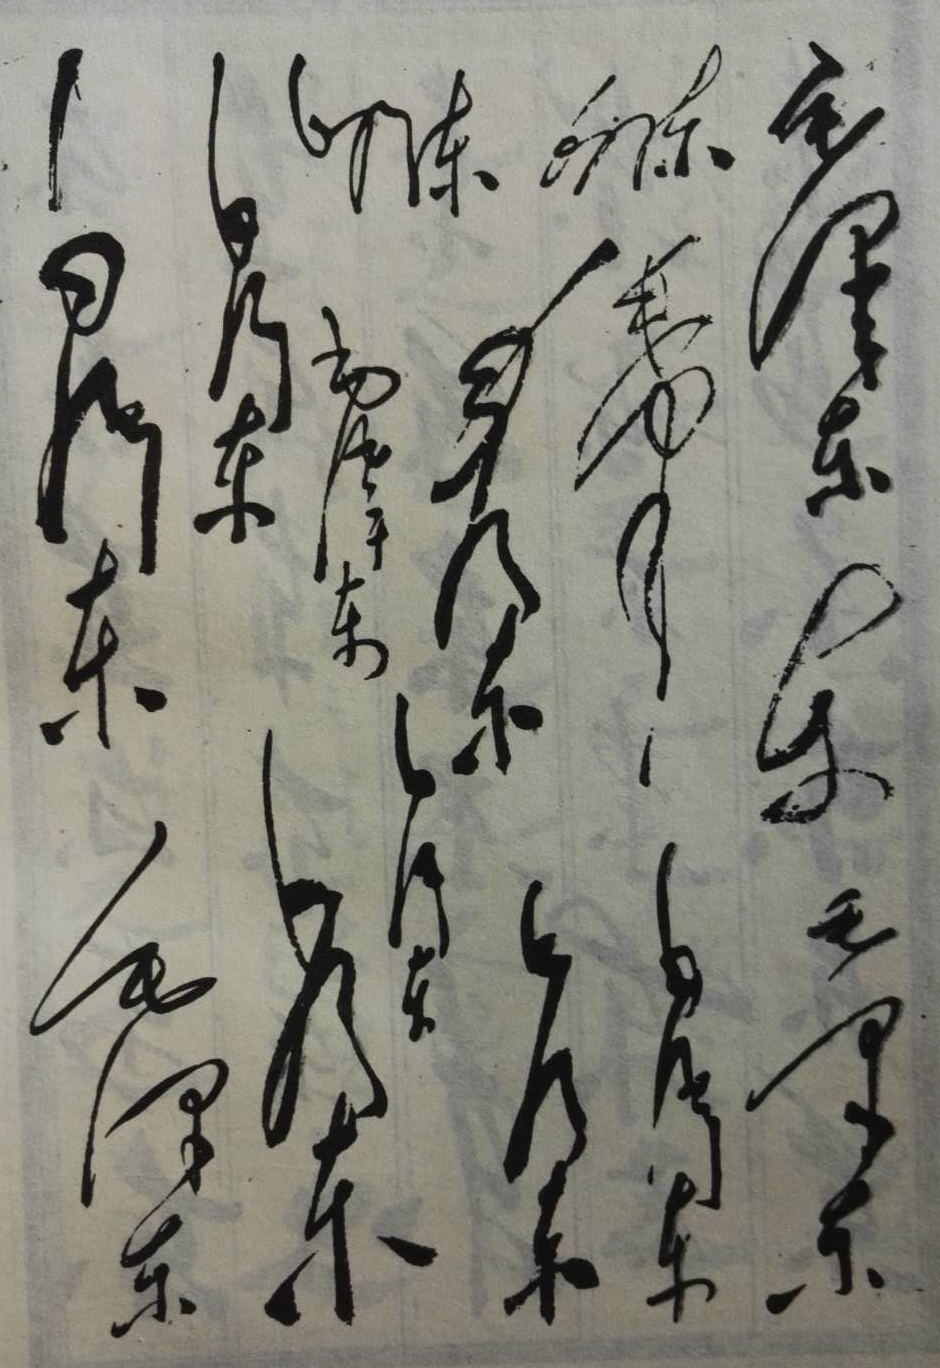 毛泽东
毛泽东
毛泽东
毛泽东
毛泽东
毛泽东
毛泽东
毛泽东
毛泽东
毛泽东
毛泽东
毛泽东
毛泽东